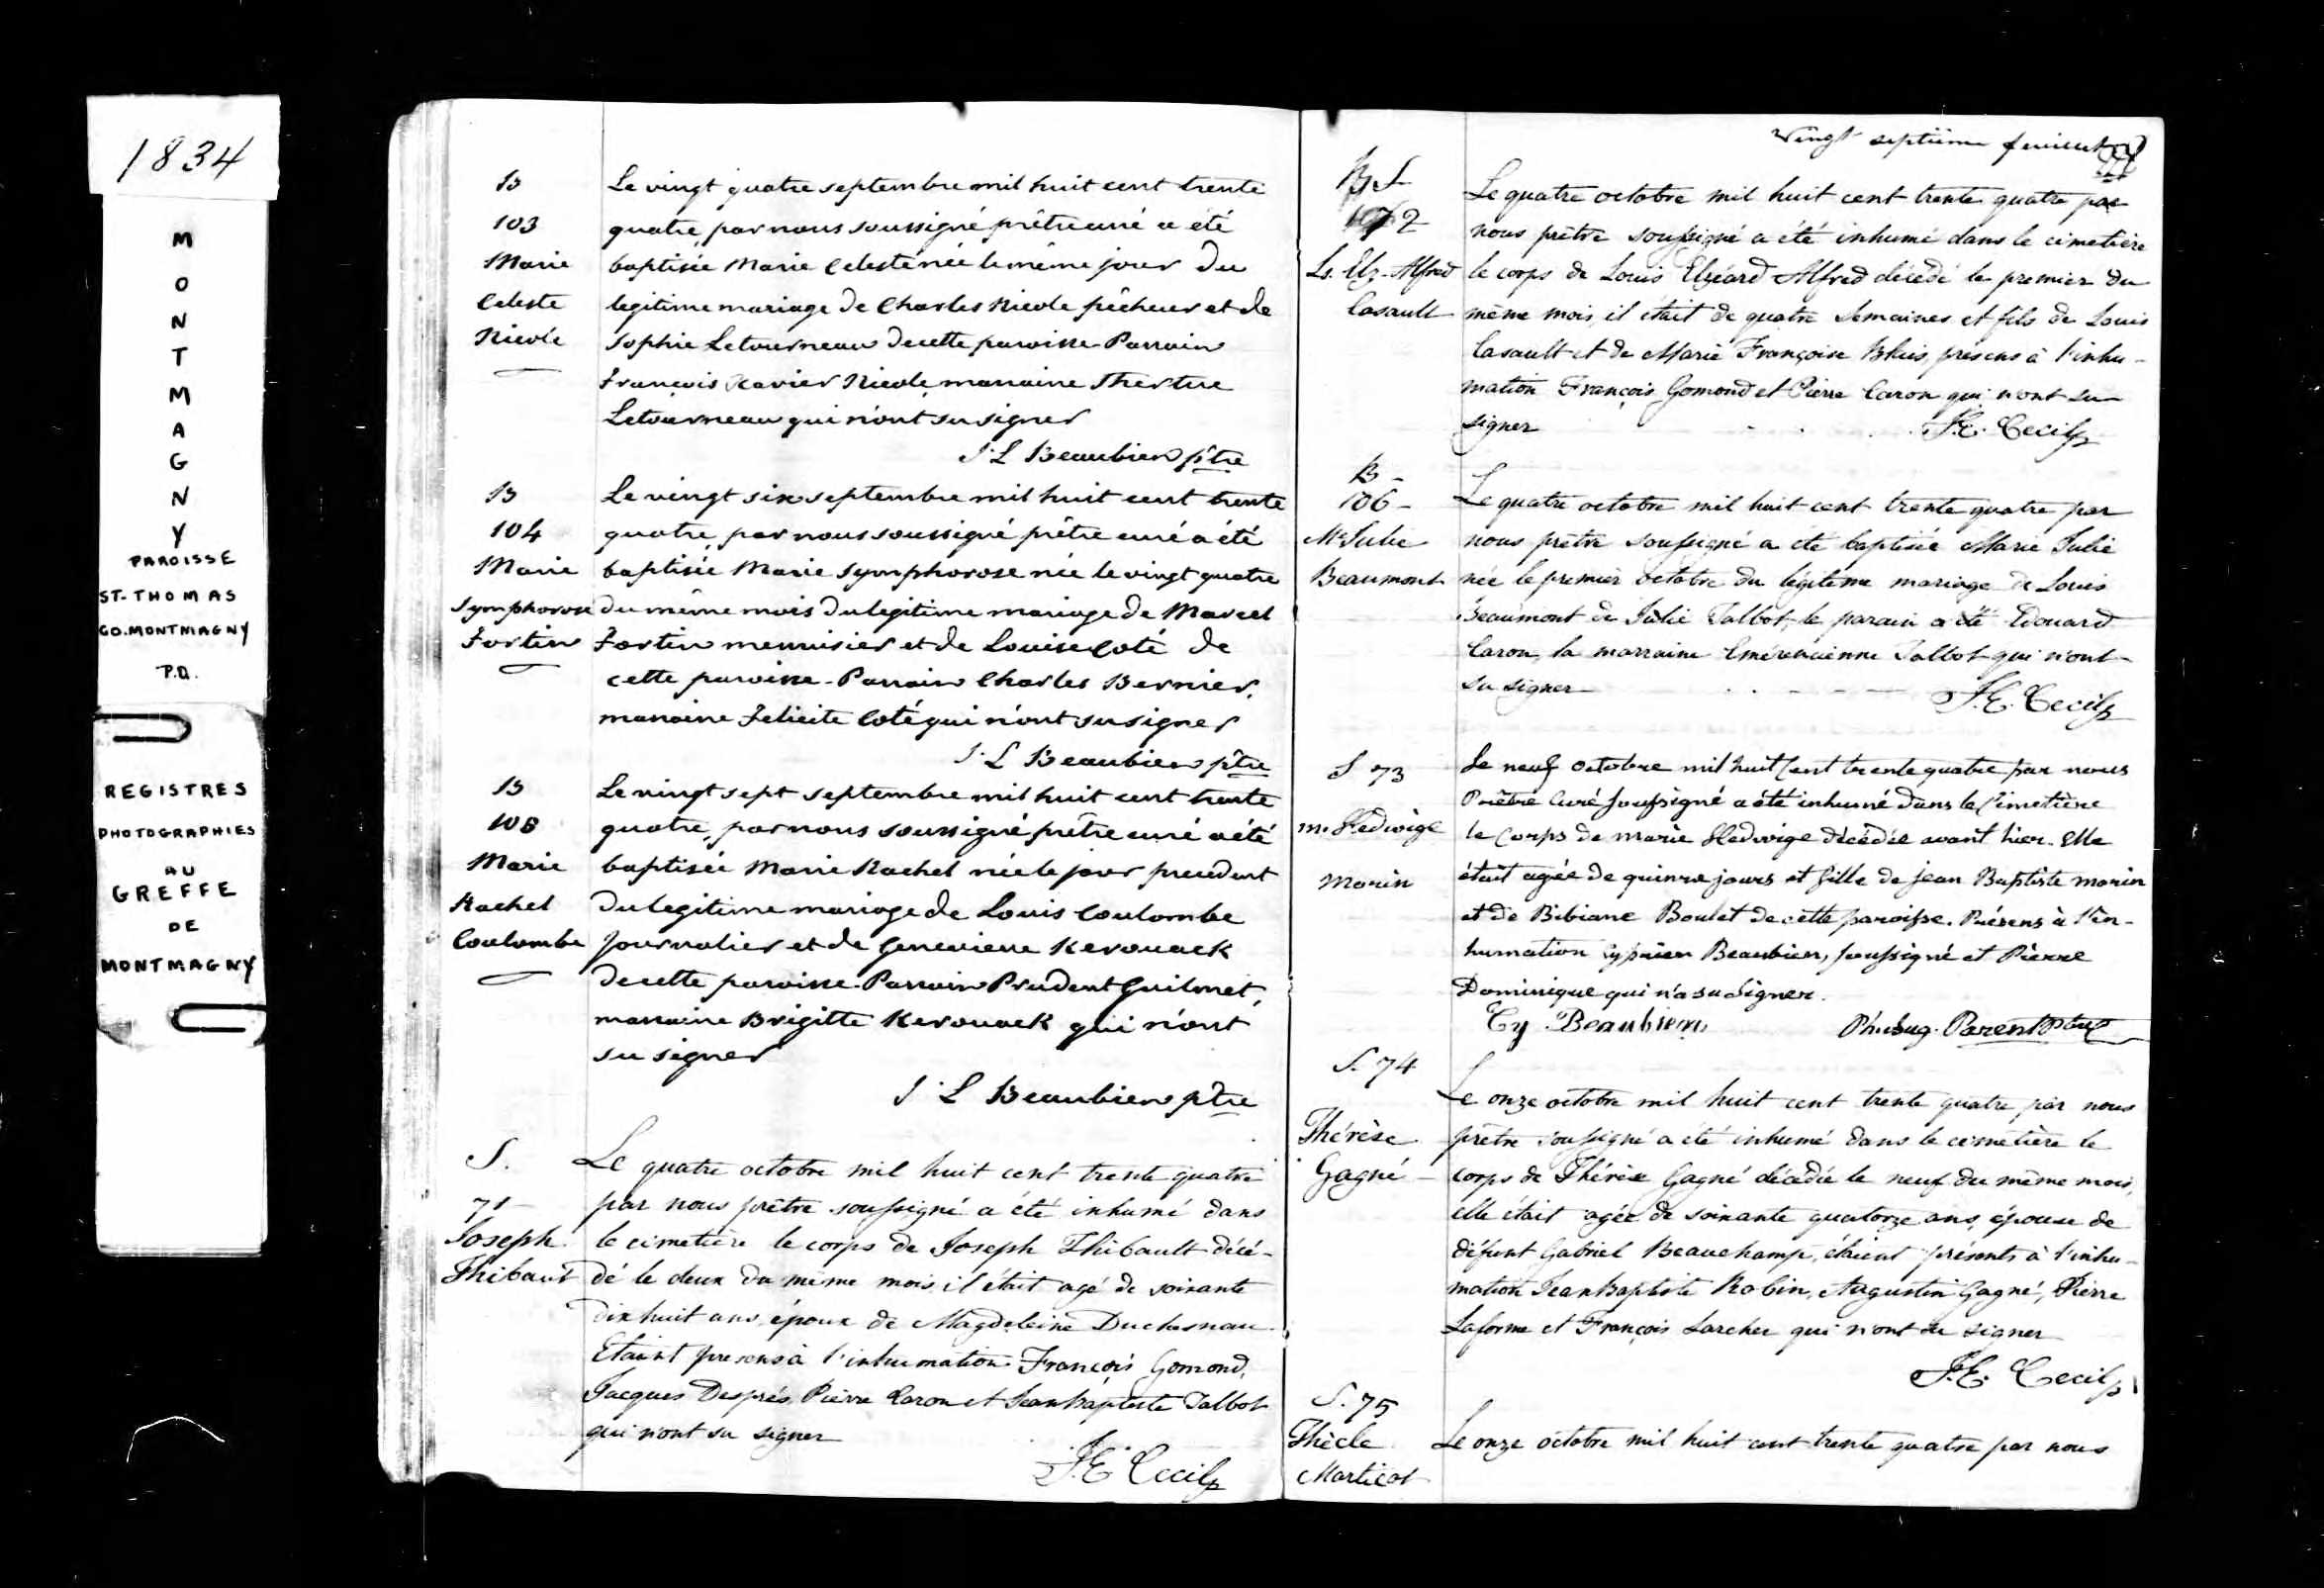 1834
M
O
N
T
M
A
G
N
Y
PAROISSE
ST-THOMAS
CO. MONTMAGNY
P.Q.
REGISTRES
PHOTOGRAPHIES
AU
GREFFE
DE
MONTMAGNY
B
103
Marie
Celeste
Nicole
Le vingt quatre septembre mil huit cent trente
quatre, par nous soussigné prêtre curé a été
baptisée Marie Celeste née le même jour du
legitime mariage de Charles Nicole pêcheur et de
Sophie Letourneau de cette paroisse Parrain
François Xavier Nicole, marraine
Letourneau qui n'ont su signer
J. L Beaubien ptre
B
104
Marie
Symphorose
Fortin
Le vingt six septembre mil huit cent trente
quatre, par nous soussigné prêtre curé a été
baptisée Marie Symphorose née le vingt quatre
du même mois du legitime mariage de Marcel
Fortin menuisier et de Louise Coté de
cette paroisse - Parrain Charles Bernier,
marraine Felicite Coté qui n'ont su signer
J. L Beaubien ptre
B
Marie
Rachel
Coulombe
Le vingt sept septembre mil huit cent trente
quatre, par nous soussigné prêtre curé a été
baptisée Marie Rachel née le jour precedent
du legitime mariage de Louis Coulombe
journalier et de Genevieve Kerouack
de cette paroisse - Parrain Prudent Guilmet,
marraine Brigitte Kerouack qui n'ont
su signer
J. L Beaubien ptre
S.
71
Joseph
Thibaut
Le quatre octobre mil huit cent trente quatre
par nous prêtre soussigné a été inhumé dans
le cimetière le corps de Joseph Thibault décé-
dé le deux du même mois, il était agé de soixante
dix huit ans, époux de Magdeleine Duchesnau.
Etaint presens à l'inhumation François Gomond,
Jacques Després, Pierre Caron et Jean Baptiste Talbot
qui n'ont su signer
J. E. Cecil p
vingt septième feuillet
S
72
Ls. Elz. Alfred
Casault
Le quatre octobre mil huit cent trente quatre par
nous prêtre soussigné a été inhumé dans le cimetière
le corps de Louis Elzéard Alfred décédé le premier du
même mois, il était de quatre semaines et fils de Louis
Casault et de Marie Françoise présens à l'inhu-
mation François Gomond et Pierre Caron qui n'ont su
signer
J. E. Cecil p
B -
106 -
M. Julie
Beaumont
Le quatre octobre mil huit cent trente quatre par
nous prêtre soussigné a été baptisée Marie Julie
née le premier octobre du légitime mariage de Louis
Beaumont de Julie Talbot, le parain a été Edouard
Caron, la marraine Talbot qui n'ont
su signer
J. E. Cecil p
S 73
M. Hedwige
Morin
Le neuf octobre mil huit Cent trente quatre par nous
Prêtre Curé soussigné a été inhumé dans le Cimetière
le Corps de Marie Hedwige décédée avant hier. Elle
était agée de quinze jours et fille de jean Baptiste Morin
et de Bibiane Boulet de cette paroisse. Présens à l'in-
humation Cyprien Beaubien, soussigné et Pierre
Dominique qui n'a su Signer.
Cy Beaubien
Parent Ptre
S. 74
Thérèse
Gagné -
Le onze octobre mil huit cent trente quatre par nous
prêtre soussigné a été inhumé dans le cimetière le
corps de Thérèse Gagné décédée le neuf du même mois,
elle était agée de soixante quatorze ans, épouse de
défunt Gabriel Beauchamp, étaient présents à l'inhu-
mation Jean Baptiste Robin, Augustin Gagné, Pierre
Laforme et François Larcher qui n'ont su signer
J. E. Cecil p
S. 75
Thècle
Marticot
Le onze octobre mil huit cent trente quatre par nous